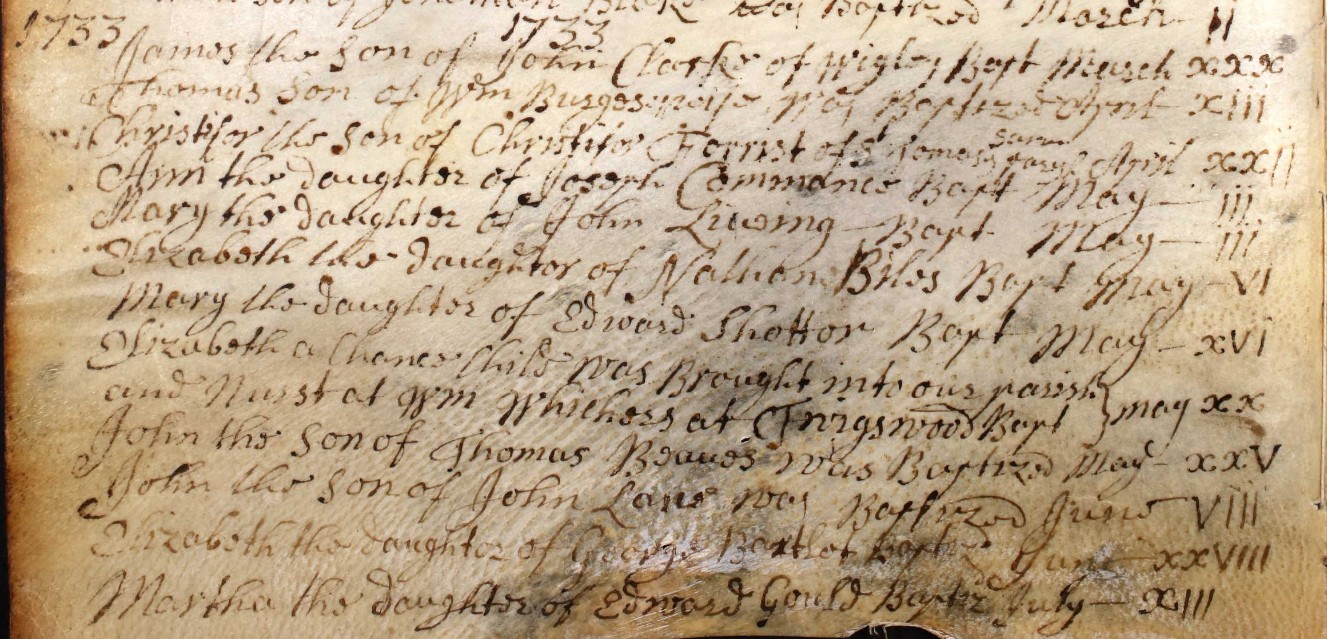 son of Jeremiah Blake was Baptized March II
1733 1733
James the Son of John Clarke of Wigley Bapt March xxx
Thomas Son of Wm Burges was Baptized Aprit xIII
Christifor the Son of Christifor Forrist of St Thomas Sarum April xxII
Ann the daughter of Joseph Commance Bapt May — III
Mary the daughter of John Liveing Bapt May — III
Elizabeth the daughter of Nathan Biles Bapt May — VI
Mary the daughter of Edward Shottor Bapt May — xVI
Elizabeth a Chance Child was Brought into our parish
and Nurst at Wm Whichers at Twigswood Bapt } may xx
John the Son of Thomas Beaves was Baptized May xxV
John the Son of John Lane was Baptized June VIII
Elizabeth the daughter of George Bartlet Baptized June — xxVIII
Martha the daughter of Edward Gould Baptiz July — xIII